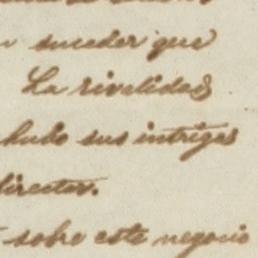 suceder que
La rivalidad
hubo sus intrigas
director.
sobre este negocio